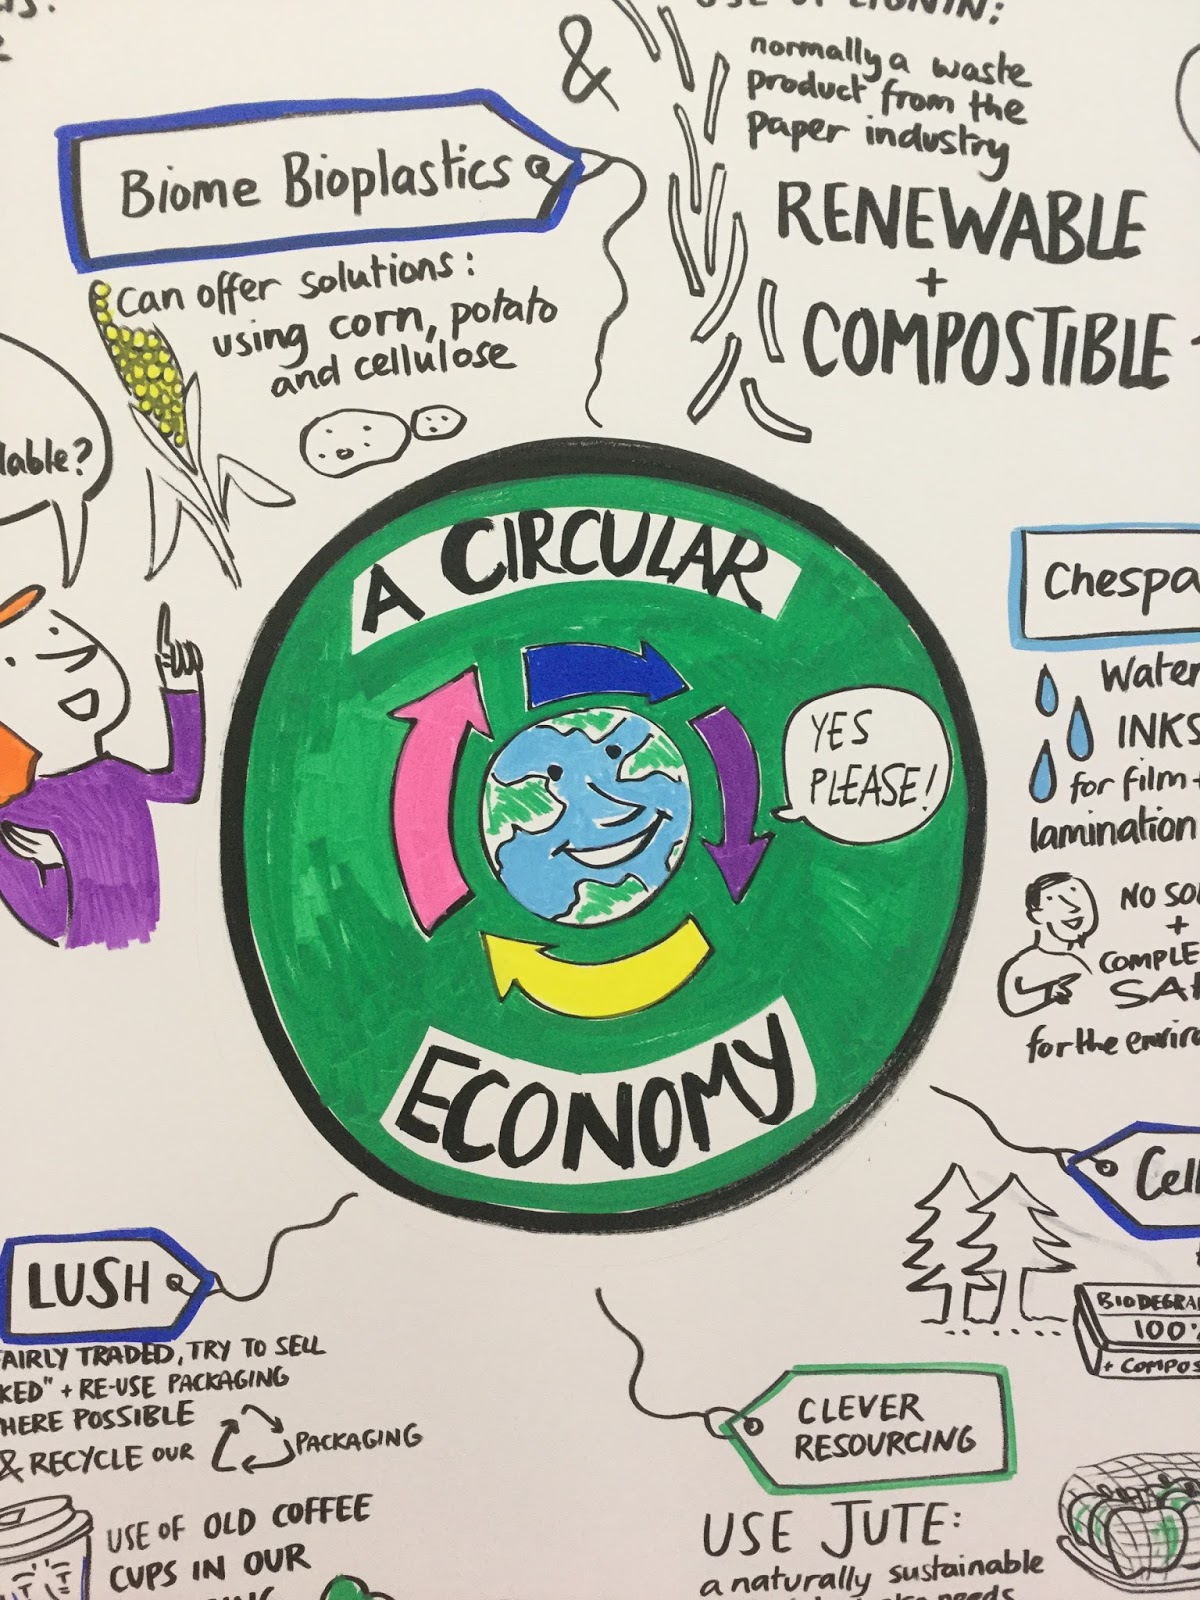 &
USE OF LIGNIN:
normally a waste
product from the
paper industry
RENEWABLE
+
COMPOSTIBLE
Biome Bioplastics
Can offer solutions:
using corn, potato
and cellulose
lable?
A CIRCULAR
ECONOMY
YES
PLEASE!
Chespa
Water
INKS
for film +
lamination
NO SOL
+
COMPLE
SAF
for the enviro
Cell
BIODEGRA
100%
+ COMPOS
LUSH
FAIRLY TRADED, TRY TO SELL
KED" + RE-USE PACKAGING
HERE POSSIBLE
& RECYCLE OUR PACKAGING
USE OF OLD COFFEE
CUPS IN OUR
CLEVER
RESOURCING
USE JUTE:
a naturally sustainable
needs